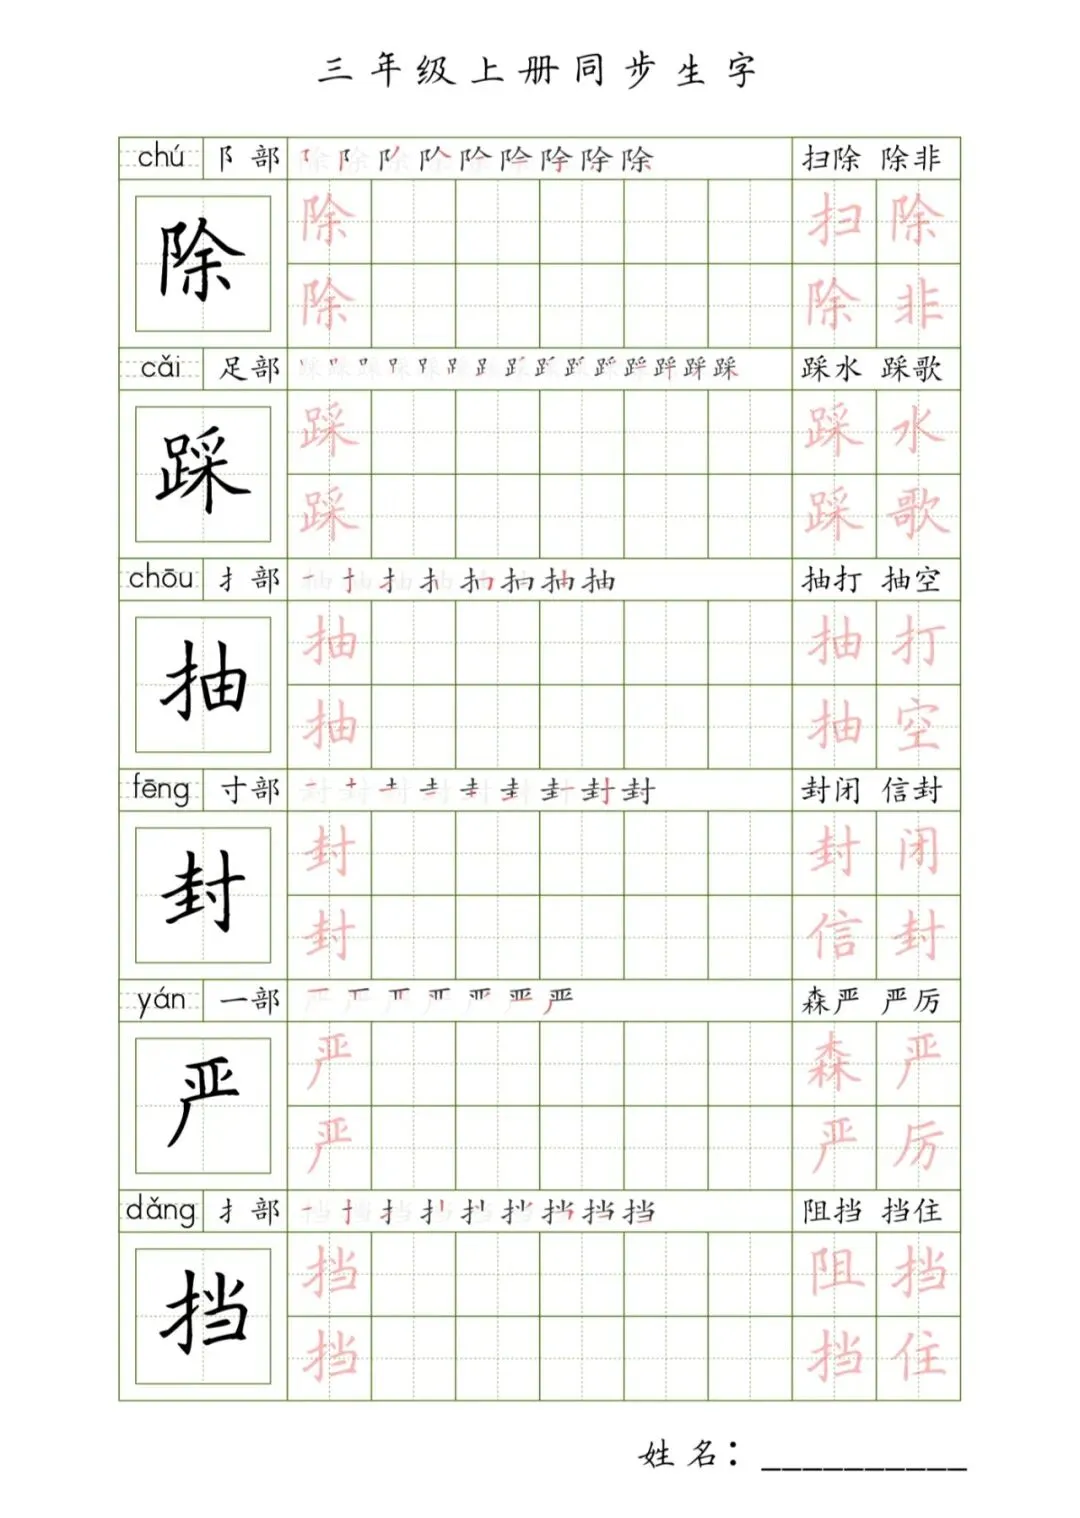 三年级上册同步生字
chú 阝部 除 扫除 除非
除 除 扫除
除 除非
cǎi 足部 踩 踩水 踩歌
踩 踩 踩水
踩 踩歌
chōu 扌部 抽 抽打 抽空
抽 抽 抽打
抽 抽空
fēng 寸部 封 封闭 信封
封 封 封闭
封 信封
yán 一部 严 森严 严厉
严 严 森严
严 严厉
dǎng 扌部 挡 阻挡 挡住
挡 挡 阻挡
挡 挡住
姓名：__________